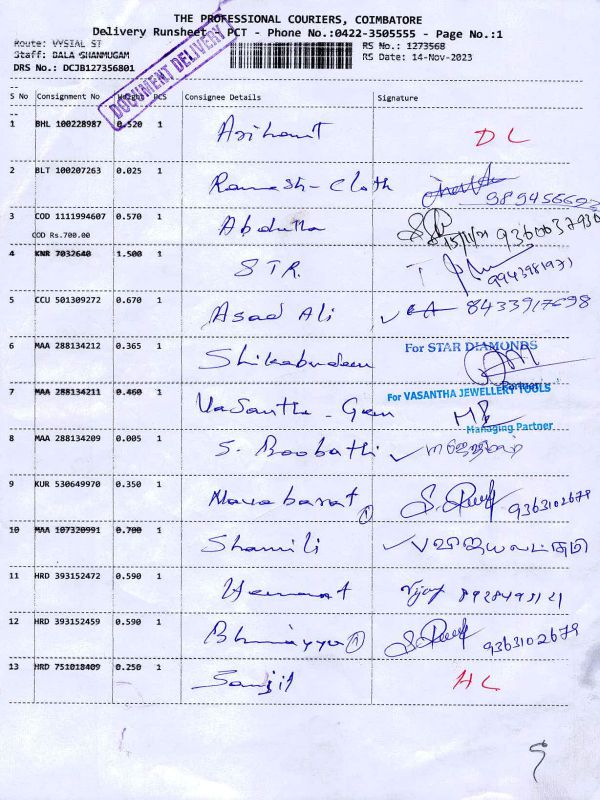 THE PROFESSIONAL COURIERS, COIMBATORE
Delivery Runsheet - PCT - Phone No.:0422-3505555 - Page No.:1
Route: VYSIAL ST
Staff: BALA SHANMUGAM
DRS No.: DCJB127356801
RS No.: 1273568
RS Date: 14-Nov-2023
DOCUMENT DELIVERY
S No Consignment No Weight PCS Consignee Details Signature
1 BHL 100228987 0.520 1 Arihant DL
2 BLT 100207263 0.025 1 Ramesh-Cloth
3 COD 1111994607 0.570 1 Abdulla
COD Rs.700.00
4 KNR 7032640 1.500 1 STR. 9943981931
5 CCU 501309272 0.670 1 Asad Ali
6 MAA 288134212 0.365 1 Shikabudeen
For STAR DIAMONDS
Partner
7 MAA 288134211 0.460 1 Vasantha - Gem
For VASANTHA JEWELLERY TOOLS
Managing Partner
8 MAA 288134209 0.005 1 S. Boobathi
9 KUR 530649970 0.350 1 9363102679
10 MAA 107320991 0.700 1 Shamili
11 HRD 393152472 0.590 1 Hemant Vijay
12 HRD 393152459 0.590 1 9363102679
13 HRD 751018409 0.250 1 HL